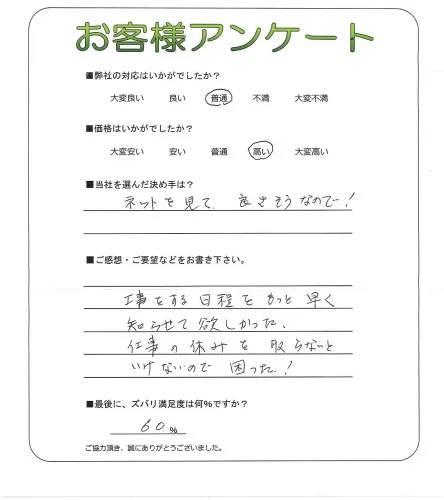 お客様アンケート
■弊社の対応はいかがでしたか？
大変良い 良い 普通 不満 大変不満
■価格はいかがでしたか？
大変安い 安い 普通 高い 大変高い
■当社を選んだ決め手は？
ネットを見て、良さそうなので！
■ご感想・ご要望などをお書き下さい。
工事をする日程をもっと早く
知らせて欲しかった、
仕事の休みを取らないと
いけないので困った！
■最後に、ズバリ満足度は何％ですか？
60％
ご協力頂き、誠にありがとうございました。